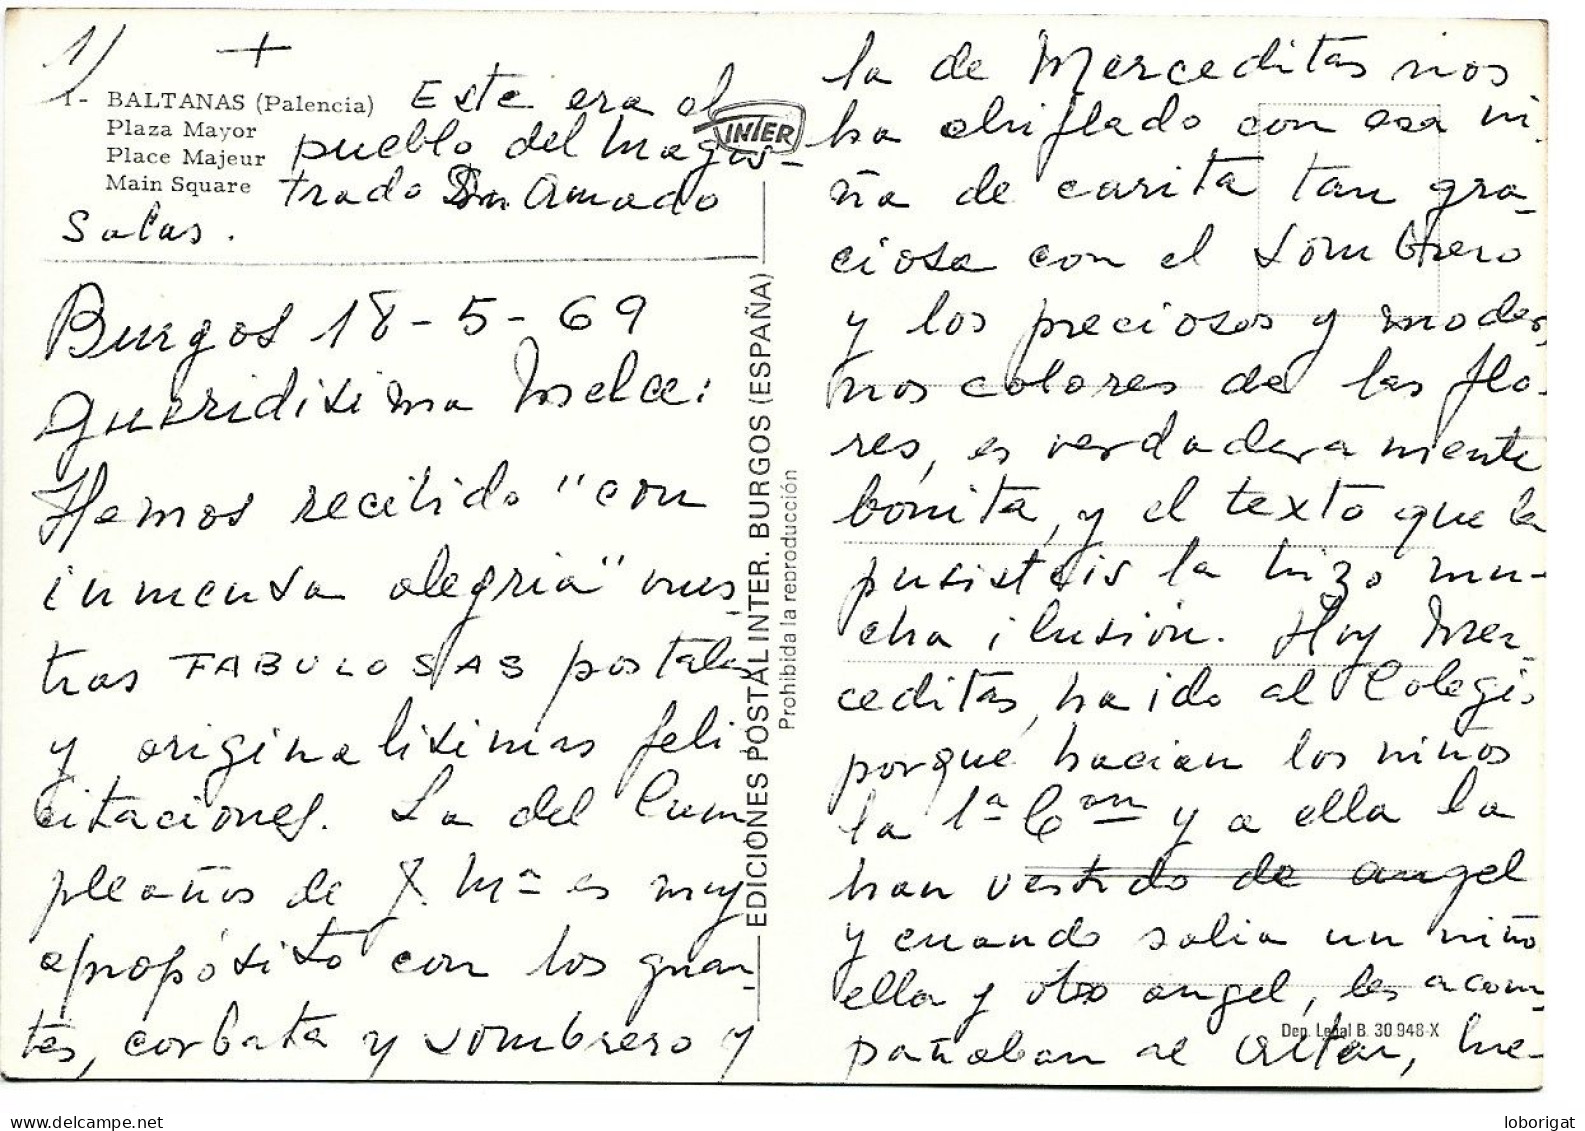 1/
+
1- BALTANAS (Palencia)
Plaza Mayor
Place Majeur
Main Square
Este era el
pueblo del Magis-
trado Dn Amado
Salas.
INTER
Burgos 18-5-69
queridisima Melce:
Hemos recibido "con
inmensa alegria" vues-
tras FABULOSAS postales
y originalisimas feli
citaciones. La del Cum
pleaños de X Mª es muy
apropósito con los guan-
tes, corbata y sombrero y
EDICIONES POSTAL INTER. BURGOS (ESPAÑA)
Prohibida la reproducción
la de Merceditas nos
ha chiflado con esa ni-
ña de carita tan gra-
ciosa con el sombrero
y los preciosos y moder-
nos colores de las flo-
res, es verdaderamente
bonita, y el texto que la
pusisteis la hizo mu-
cha ilusión. Hoy Mer-
ceditas, ha ido al Colegio
porque hacian los niños
la 1ª Con y a ella la
han vestido de angel
y cuando salia un niño
ella y otro angel, les acom-
pañaban al altar, lue-
Dep. Legal B. 30948-X
loborigat